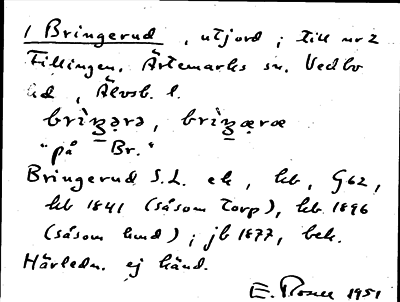 1 Bringerud, utjord; till nr 2
Fillingen. Ärtemarks sn. Vedbo
hd, Älvsb. l.
"på Br."
Bringerud S.L. ek, kb, G62,
kb 1841 (såsom torp), kb. 1896
(såsom hmd); jb 1877, bek.
Härledn. ej känd.
E. 1951